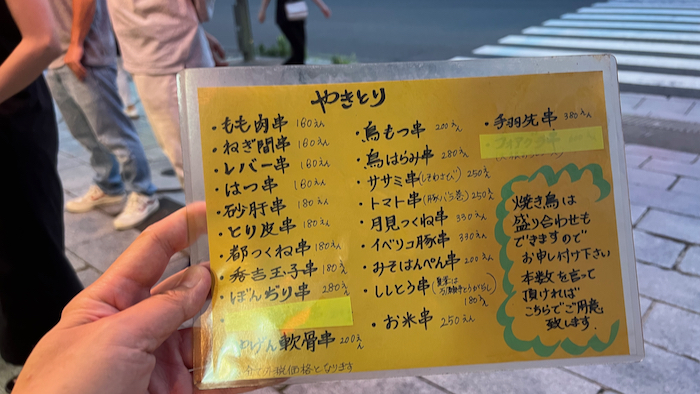 やきとり
・もも肉串 160えん
・ねぎ間串 160えん
・レバー串 160えん
・はつ串 160えん
・砂肝串 180えん
・とり皮串 180えん
・都つくね串 180えん
・秀吉玉子串 180えん
・ぼんぢり串 280えん
げん軟骨串 200えん
税価格となります
・鳥もつ串 200えん
・鳥はらみ串 280えん
・ササミ串(しそわさび) 250えん
・トマト串(豚バラ巻) 250えん
・月見つくね串 330えん
・イベリコ豚串 330えん
・みそはんぺん串 200えん
・ししとう串
180えん
・お米串 250えん
・手羽先串 380えん
焼き鳥は
盛り合わせも
できますので
お申し付け下さい
本数を言って
頂ければ
こちらでご用意
致します。